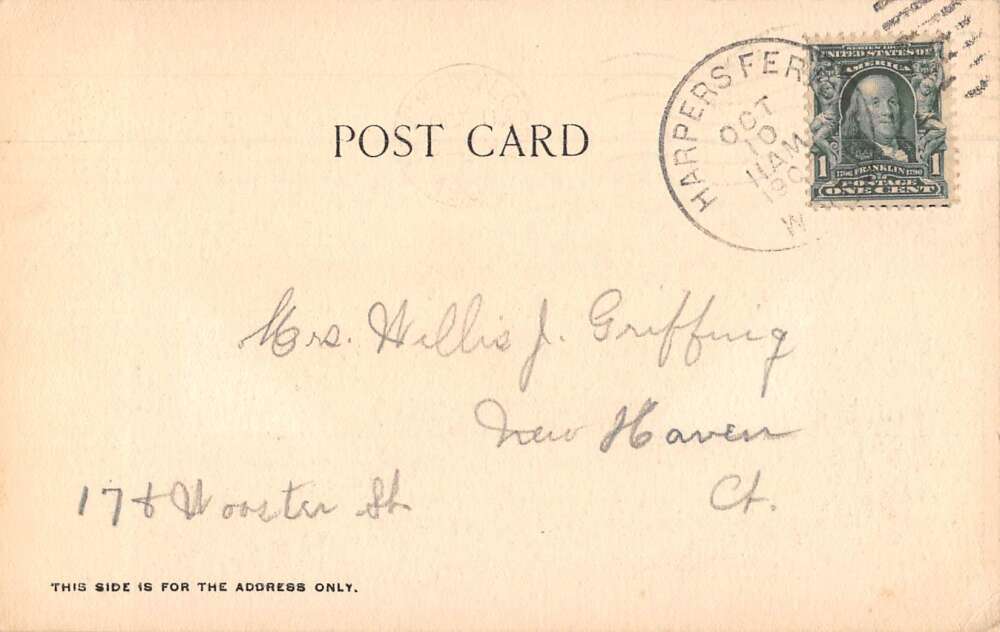 POST CARD
HARPERS FER
OCT
10
11 AM
190
W
SERIES 1902
UNITED STATES OF
AMERICA
1 1
1706 FRANKLIN 1790
POSTAGE
ONE CENT
Mrs. Willis J. Griffing
New Haven
178 Wooster St. Ct.
THIS SIDE IS FOR THE ADDRESS ONLY.